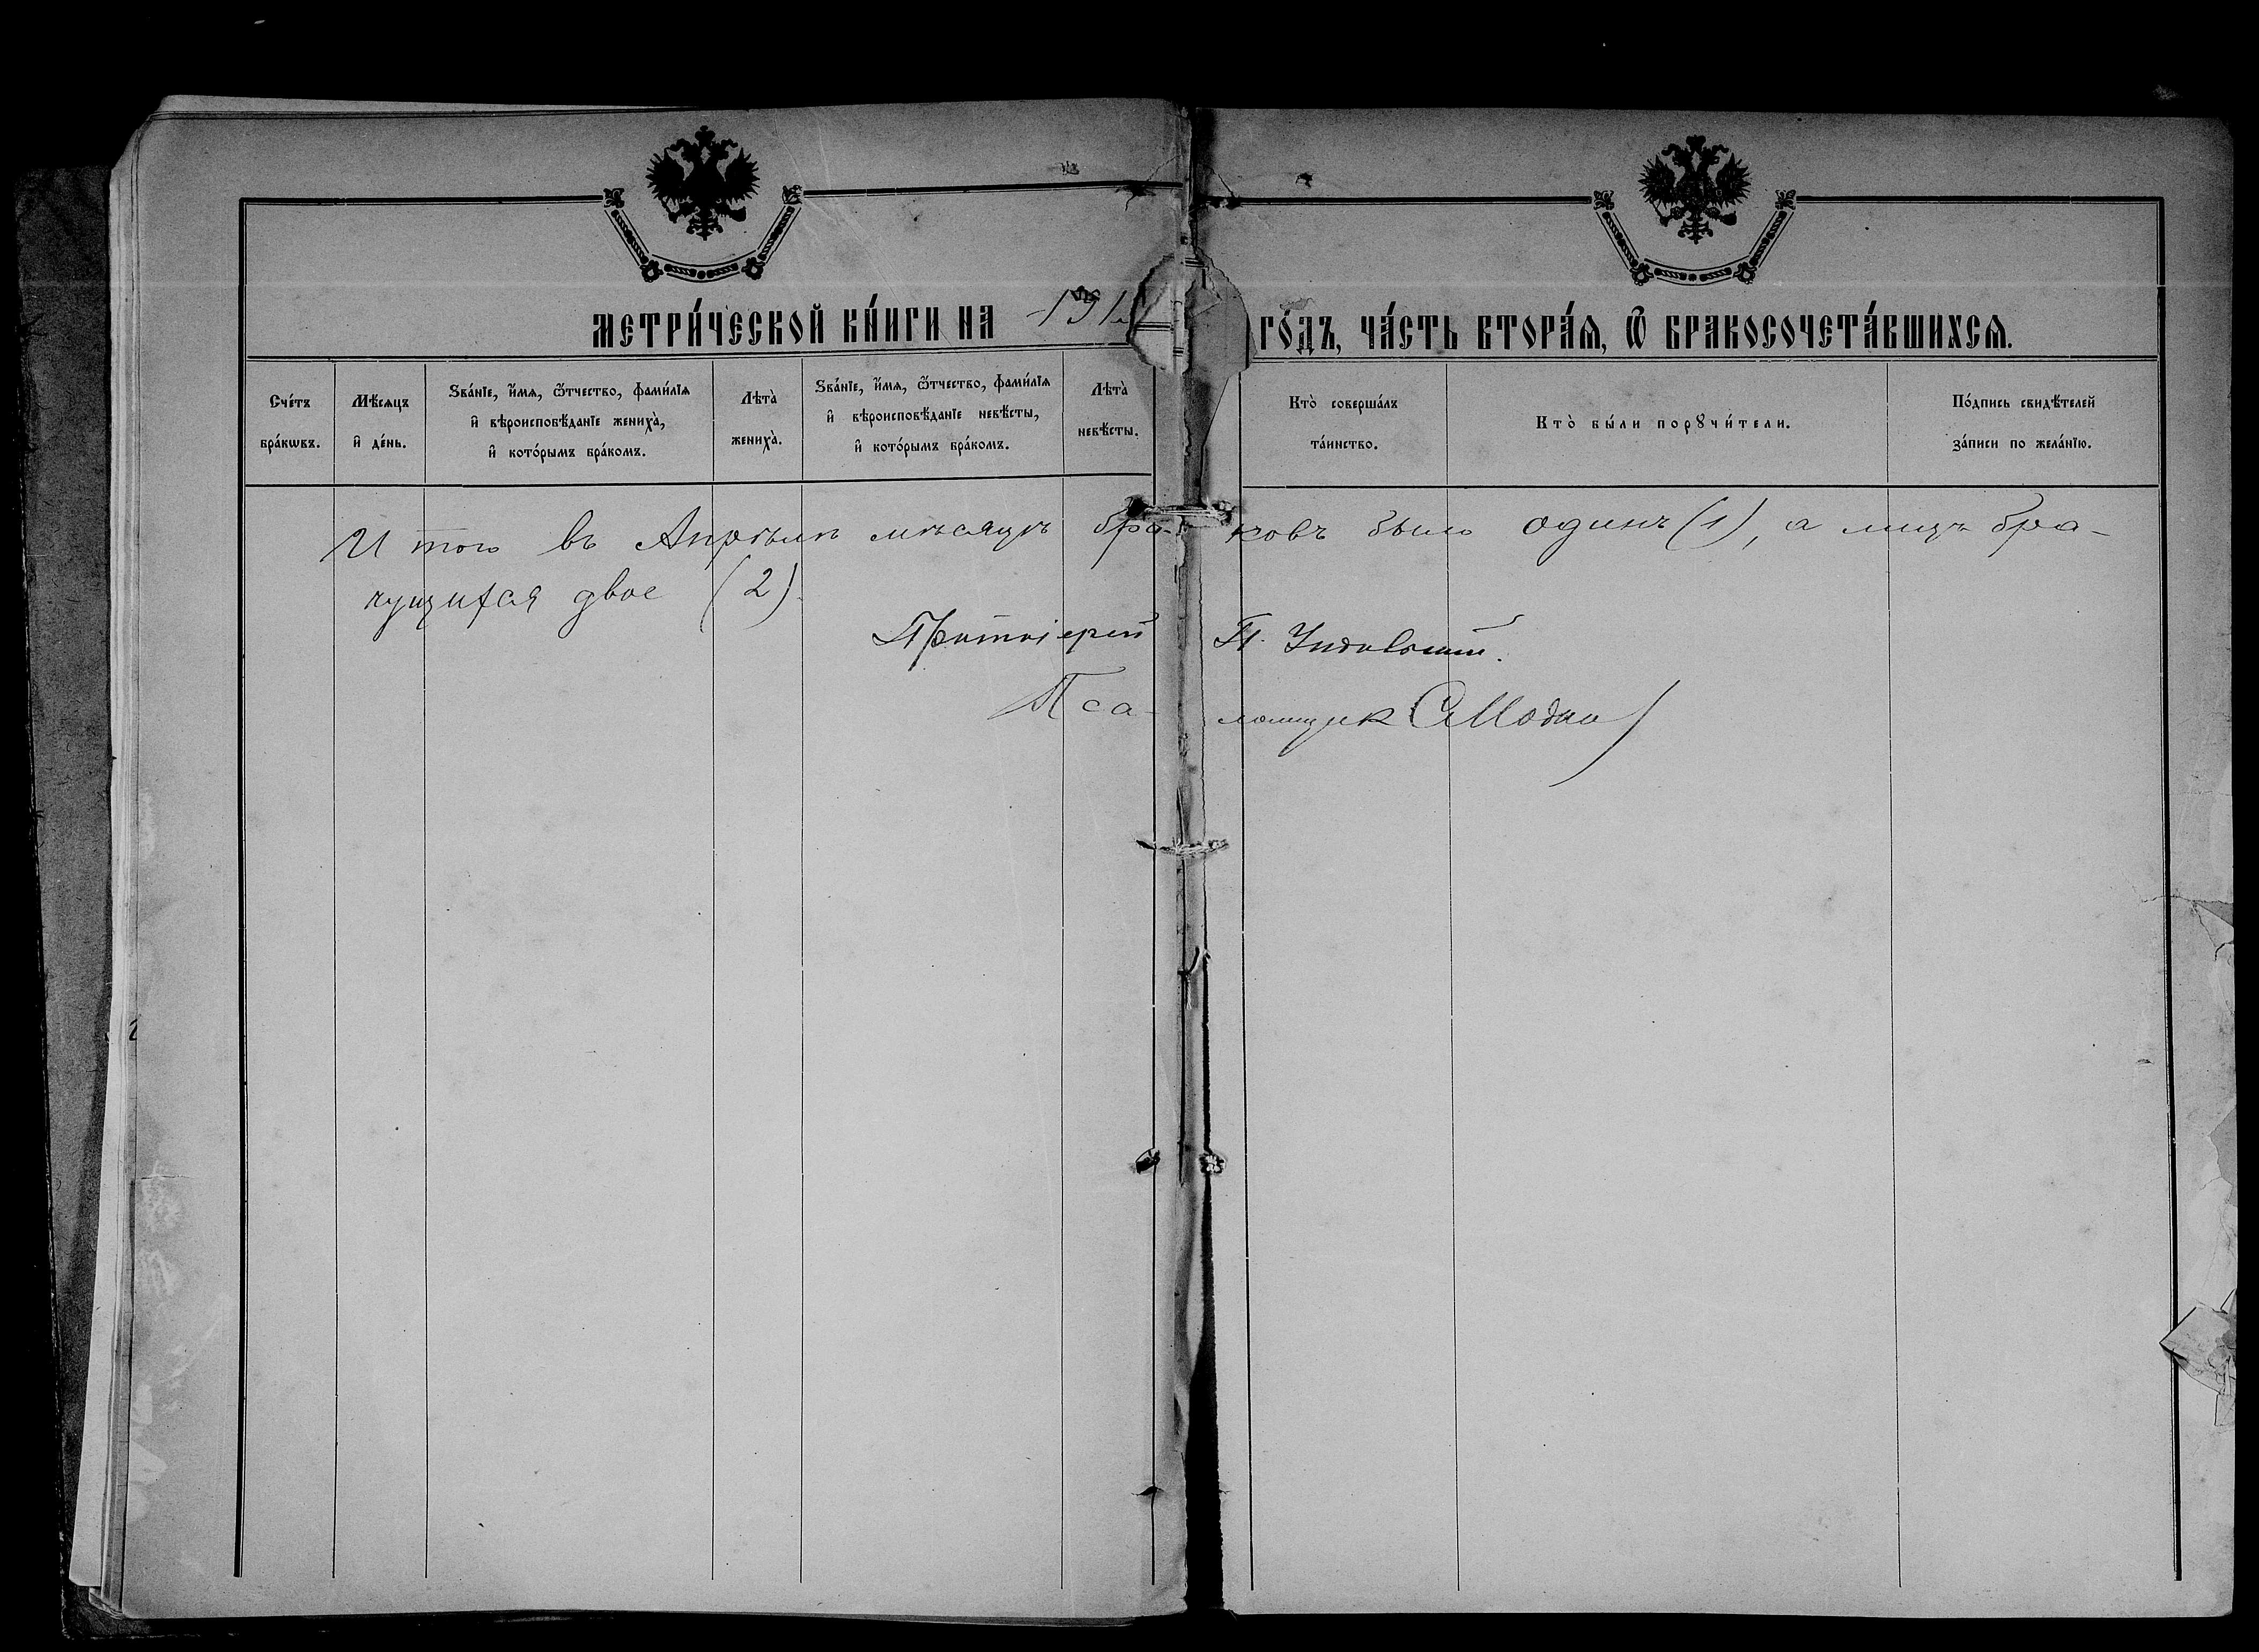 МЕТРИ́ЧЕСКОЙ КНИ́ГИ НА 191 ГО́ДЪ, ЧА́СТЬ ВТОРА́Ѧ, Ѿ БРАКОСОЧЕТА́ВШИХСѦ.
Сче́тъ бра́кѡвъ.
Мѣ́сяцъ и҆ де́нь.
Ѕва́нїе, и҆́мя, ѻ҆́тчество, фами́лїя и҆ вѣроисповѣ́данїе жениха̀, и҆ кото́рымъ бра́комъ.
Лѣта̀ жениха̀.
Ѕва́нїе, и҆́мя, ѻ҆́тчество, фами́лїя и҆ вѣроисповѣ́данїе невѣ́сты, и҆ кото́рымъ бра́комъ.
Лѣта̀ невѣ́сты.
Кто̀ соверша́лъ та́инство.
Кто̀ бы́ли порꙋчи́тели.
По́дпись свидѣ́телей за́писи по жела́нїю.
Итого въ Апрѣлѣ мѣсяцѣ бра- ковъ было одинъ (1), а лицъ бра-
чущихся двое (2).
Протоіерей П.
Пса- ломщик